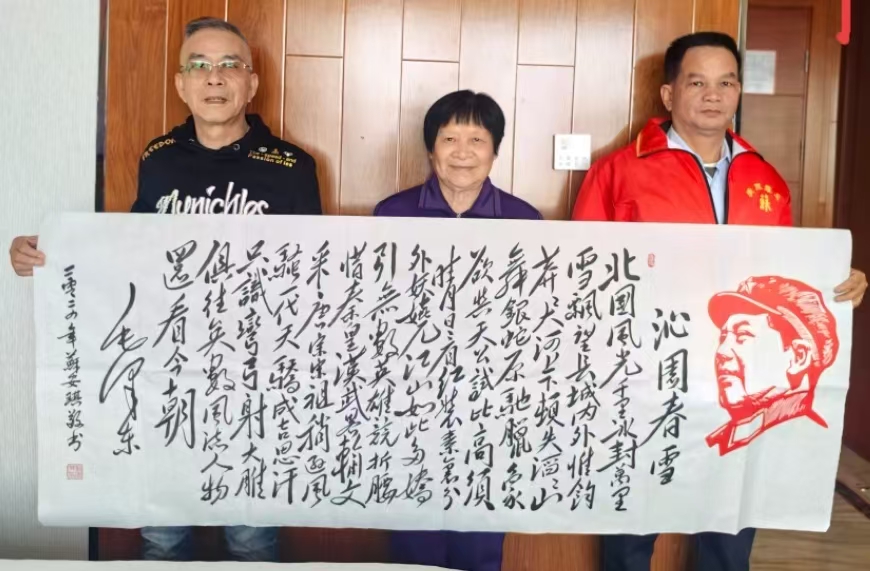 沁園春雪
北国风光千里冰封萬里
雪飘望長城内外惟餘
莽莽大河上下頓失滔滔山
舞銀蛇原馳臘象
欲与天公試比高須
晴日看红装素裹分
外妖娆江山如此多嬌
引無數英雄競折腰
惜秦皇漢武略輸文
采唐宗宋祖稍遜風
騷一代天驕成吉思汗
只識彎弓射大雕
俱往矣數風流人物
還看今朝
毛泽东
二零二四年蘇安琪敬书
The speed and
Passion of ice
Munichles
蘇